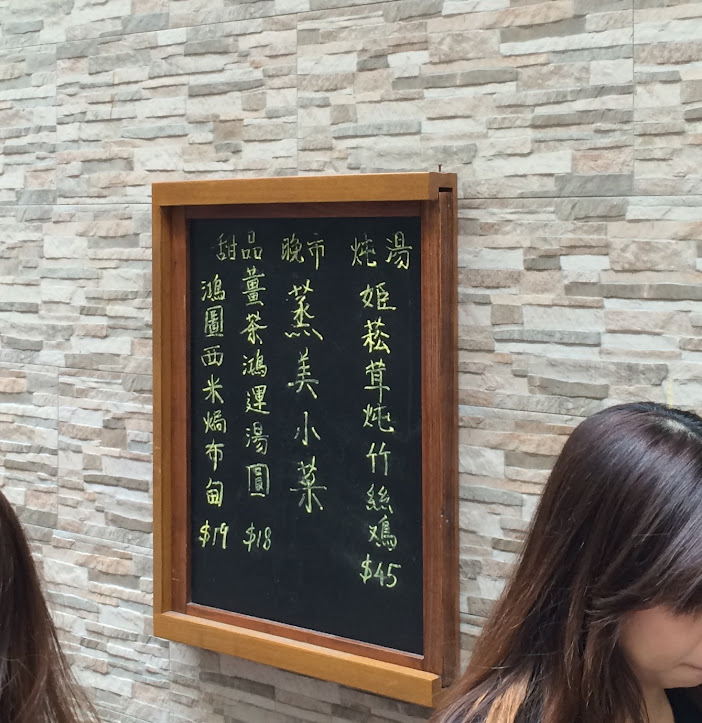 炖湯
姫菘茸炖竹絲鷄
$45
晚市
蒸美小菜
甜品
薑茶鴻運湯圓
$18
鴻圖西米焗布甸
$19